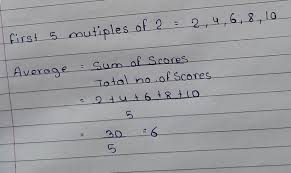 first 5 mutiples of 2 = 2, 4, 6, 8, 10
Average = Sum of Scores
Total no. of Scores
= 2 + 4 + 6 + 8 + 10
5
= 30 = 6
5